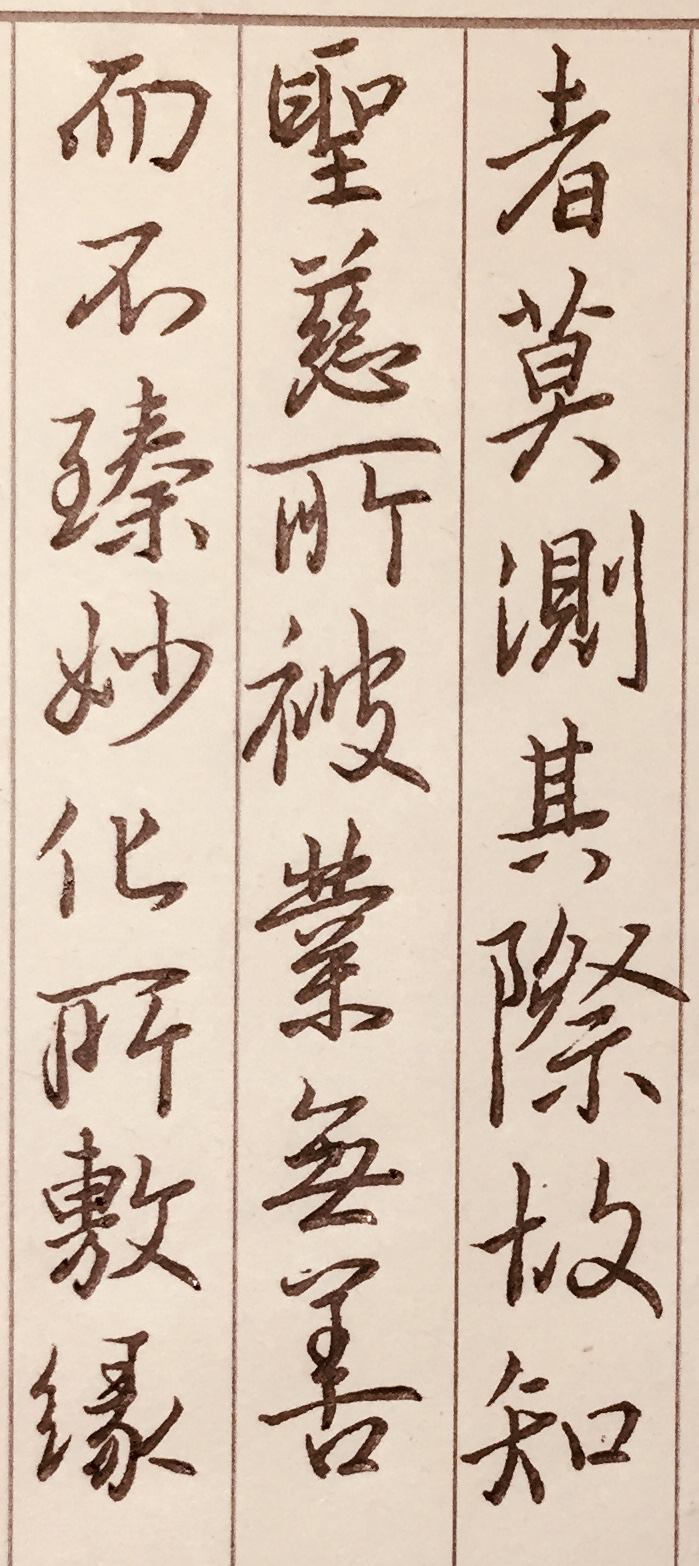 者莫測其際故知
聖慈所被業無善
而不臻妙化所敷緣